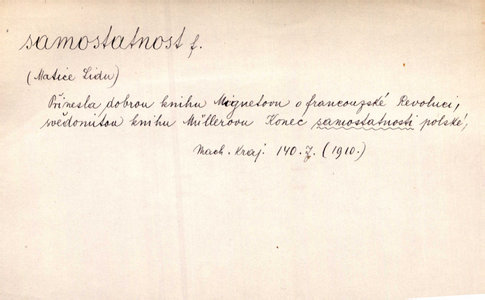 samostatnost f.
(Matice Lidu)
Přinesla dobrou knihu Mignetovu o francouzské Revoluci,
svědomitou knihu Müllerovu Konec samostatnosti polské,
Mach. Kraj. 140. Z. (1910.)